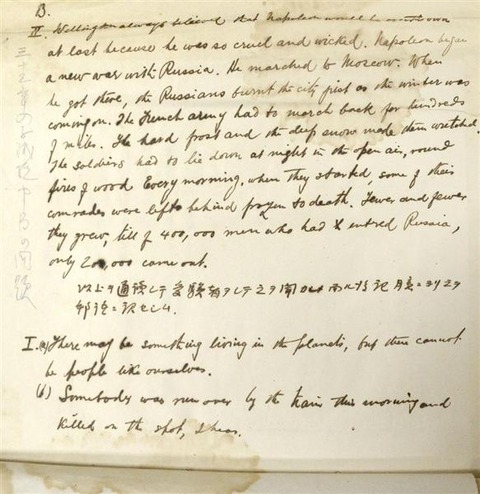 B.
IV. Wellington always believed that Napoleon would be overthrown
at last because he was so cruel and wicked. Napoleon began
a new war with Russia. He marched to Moscow. When
he got there, the Russians burnt the city just as the winter was
coming on. The French army had to march back for hundreds
of miles. The hard frost and the deep snow made them wretched.
The soldiers had to lie down at night in the open air, round
fires of wood. Every morning, when they started, some of their
comrades were left behind frozen to death. Fewer and fewer
they grew, till of 400,000 men who had entred Russia,
only 20,000 came out.
以上ヲ通読シテ受験者ヲシテ之ヲ
I. (a) There may be something living in the planets, but there cannot
be people like ourselves.
(b) Somebody was run over by the train this morning and
killed on the spot, I hear.